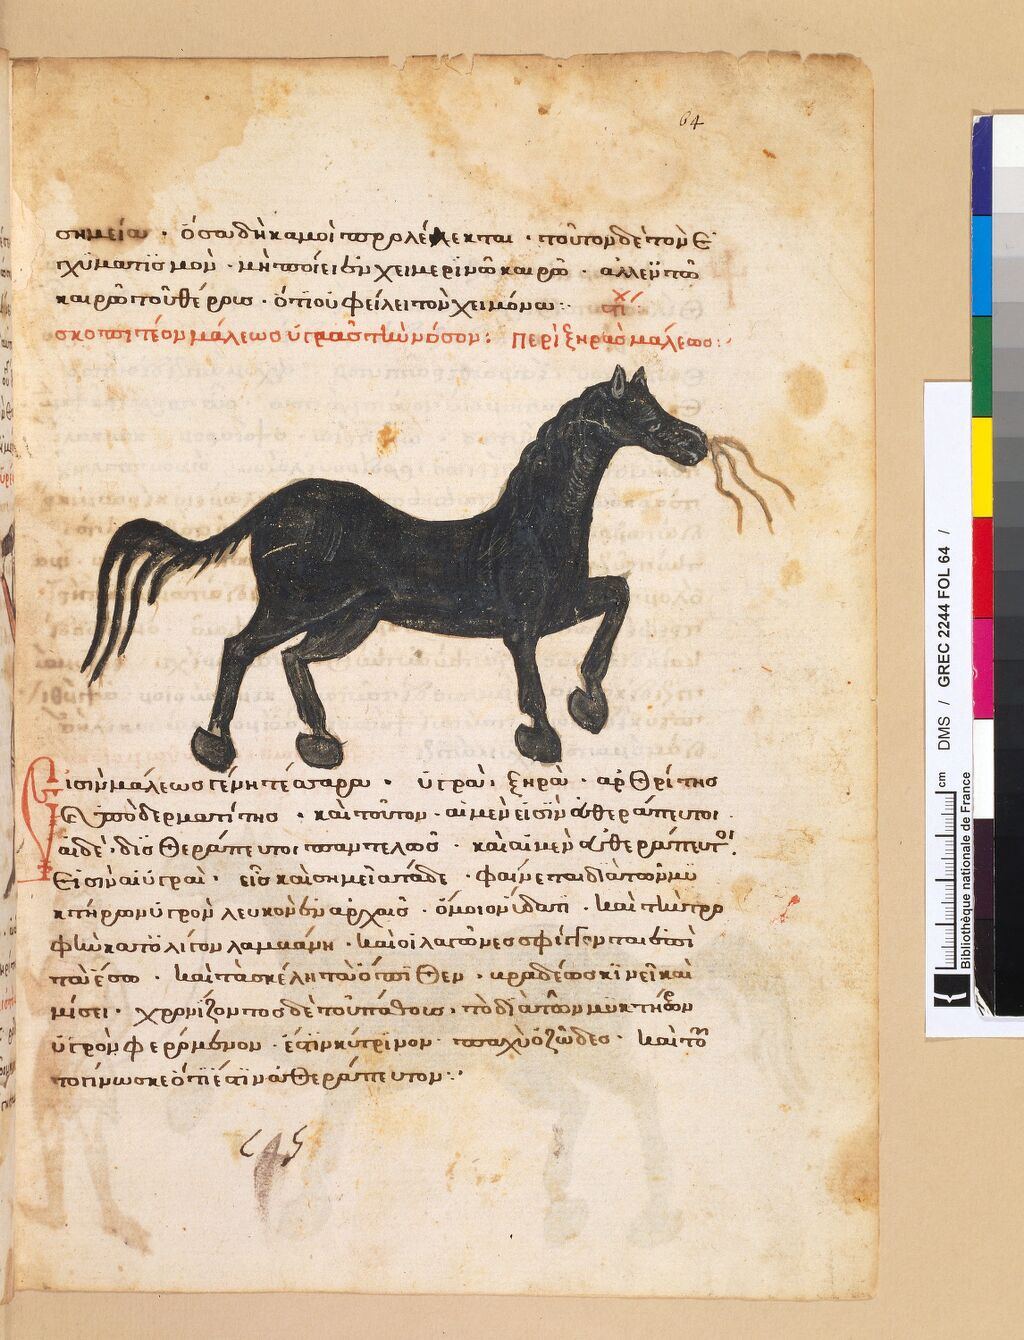 64
σημεία · ὅσα δὴ καμοὶ προλέλεκται · τοῦτον δὲ τὸν ἐ
χυματισμὸν · μὴ ποίει ἐν χειμερινῶ καιρῶ · ἀλλ' ἐν τῶ
καιρῶ τοῦ θέρους · ὅτι οὐφείλει τὸν χειμόνα :·
σκοποιτέον μάλεως ὑγρᾶς τὴν νόσον : Περὶ ξηρᾶς μάλεως :·
Εἰσὶν μάλεως γένη τέσσαρα · ὑγρὰ, ξηρὰ · ἀρθρίτης
ὑποδερματίτης · καὶ τοῦτον · αἱ μὲν εἰσὶν ἀθεράπευτοι
αἱ δὲ · δισθεράπευτοι παντελῶς · καὶ αἱ μὲν ἀθεράπευτοι
εἰσὶν αἱ ὑγραί · εἷς καὶ σημεῖα τάδε · φαίνεται διὰ τῶν μυ
κτήρων ὑγρὸν λευκὸν ἐν ἀρχαῖς · ὅμοιον ὕδατι · καὶ τὴν τρο
φὴν κατολίγον λαμμάνη · καὶ οἱ λαγῶνες σφίγγονται ἐπὶ
τὰ ἔσω · καὶ τὰ σκέλη τὰ ὄπισθεν · βραδέως κινεῖ καὶ
μίσει · χρονίζοντος δὲ τοῦ πάθους · τὸ διὰ τῶν μυκτήρων
ὑγρὸν φερόμενον · ἐστὶν κύτρινον · παχὺ ὀζῶδες · καὶ τό
το γίνωσκε ὅτι ἐστὶν ἀθεράπευτον :·
DMS / GREC 2244 FOL 64 /
cm
Bibliothèque nationale de France